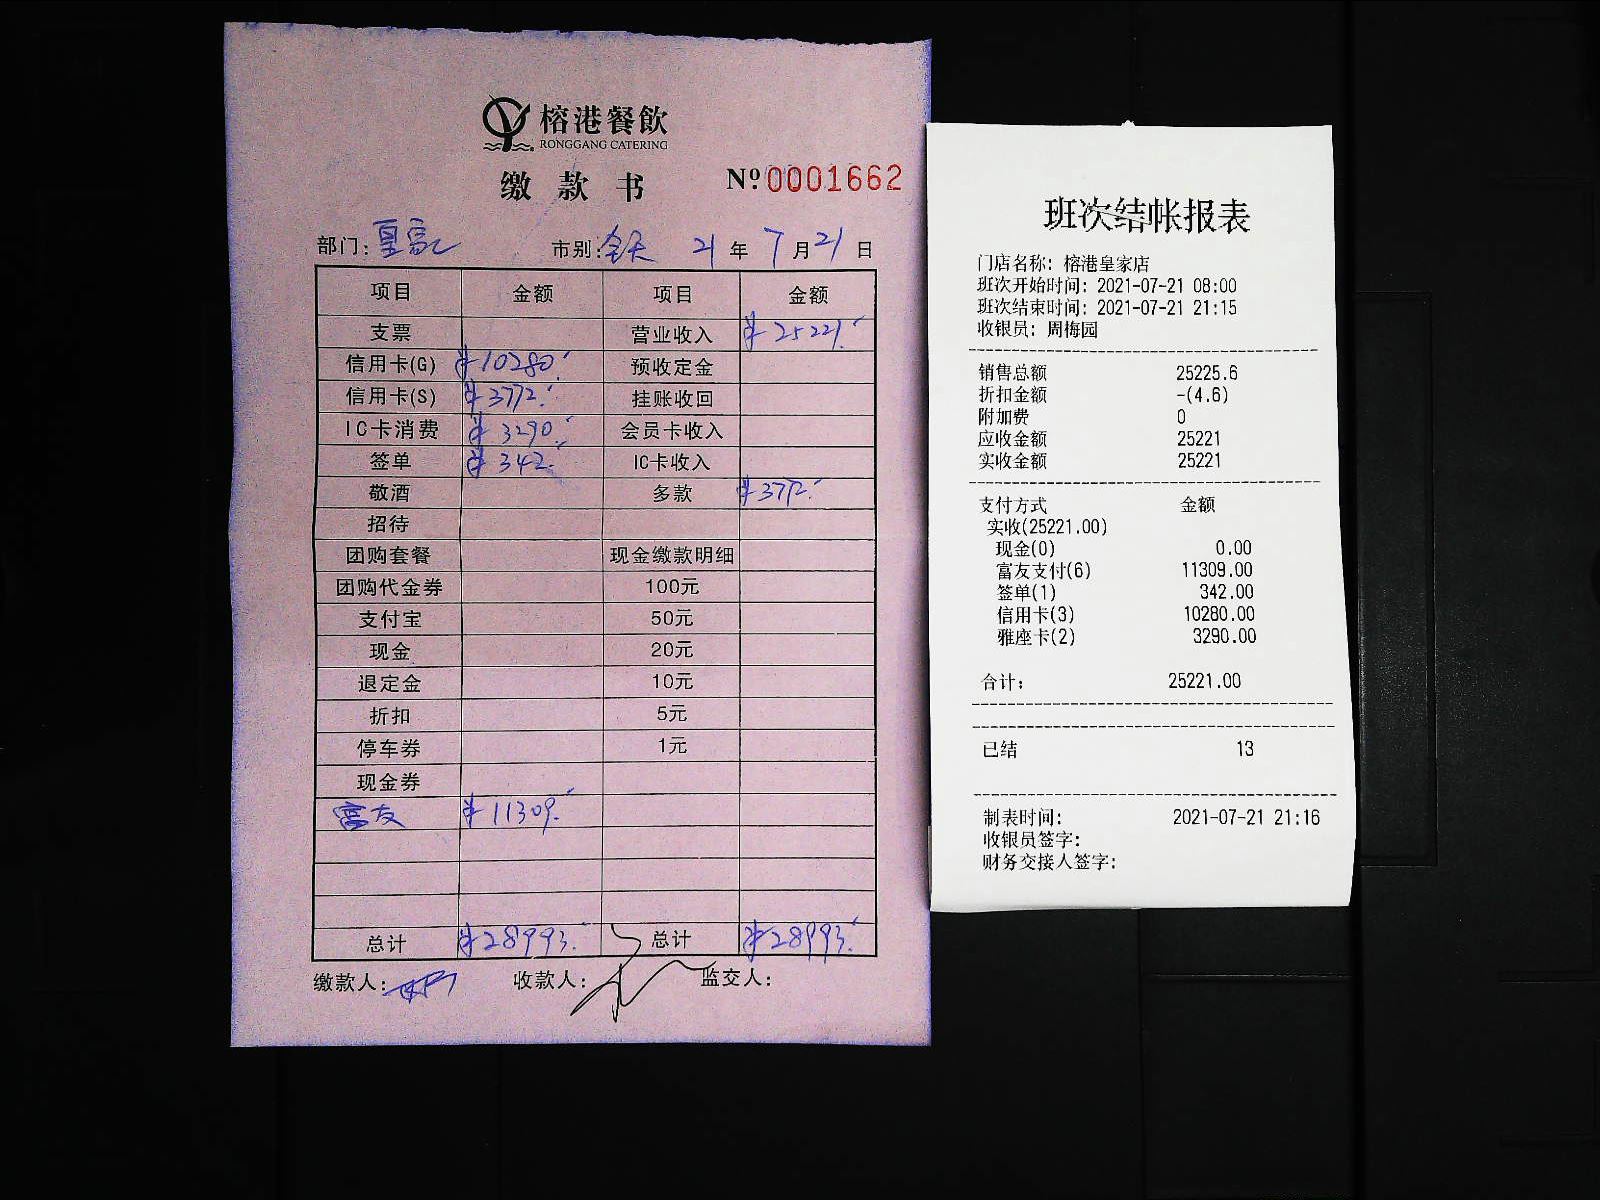 榕港餐飲
RONGGANG CATERING
缴款书
№0001662
部门: 皇家 市别: 全天 21年7月21日
项目 金额 项目 金额
支票 营业收入 ¥25221.
信用卡(G) ¥10280. 预收定金
信用卡(S) ¥3772. 挂账收回
IC卡消费 ¥3290. 会员卡收入
签单 ¥342. IC卡收入
敬酒 多款 ¥3772.
招待
团购套餐 现金缴款明细
团购代金券 100元
支付宝 50元
现金 20元
退定金 10元
折扣 5元
停车券 1元
现金券
富友 ¥11309.
总计 ¥28993. 总计 ¥28993.
缴款人: 收款人: 监交人:
班次结帐报表
门店名称: 榕港皇家店
班次开始时间: 2021-07-21 08:00
班次结束时间: 2021-07-21 21:15
收银员: 周梅园
销售总额 25225.6
折扣金额 -(4.6)
附加费 0
应收金额 25221
实收金额 25221
支付方式 金额
实收(25221.00)
现金(0) 0.00
富友支付(6) 11309.00
签单(1) 342.00
信用卡(3) 10280.00
雅座卡(2) 3290.00
合计: 25221.00
已结 13
制表时间: 2021-07-21 21:16
收银员签字:
财务交接人签字: